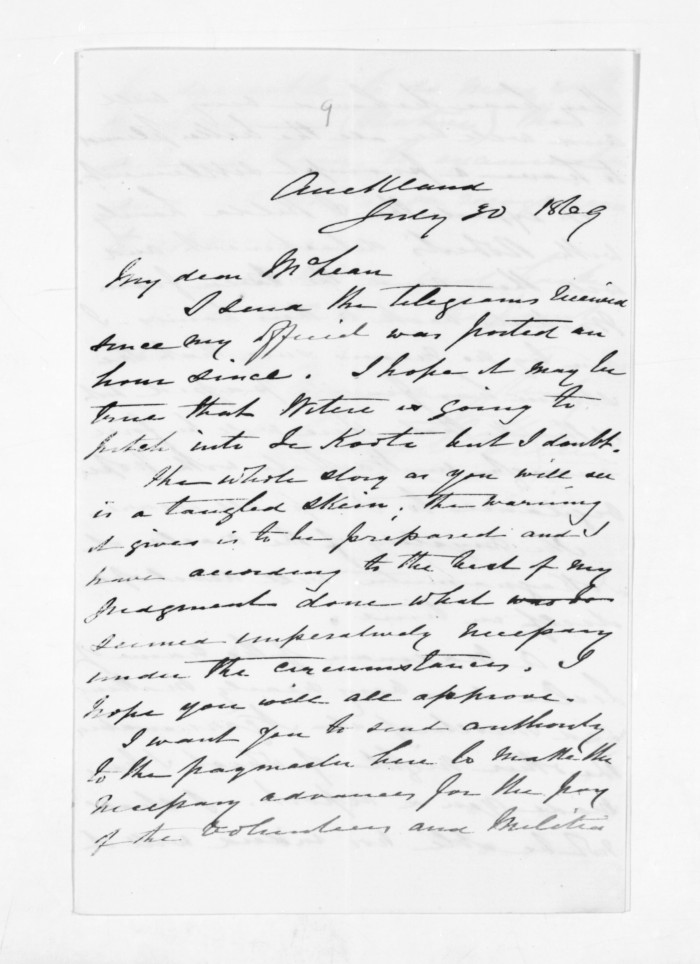 9
Auckland
July 30 1869
My dear McLean
I send the telegrams received
since my official was posted an
hour since. I hope it may be
true that Witere is going to
pitch into Te Kooti but I doubt.
The whole story as you will see
is a tangled skein; the warning
it gives is to be prepared and I
have according to the best of my
judgment done what was
seemed imperatively necessary
under the circumstances. I
hope you will all approve.
I want you to send authority
to the paymaster here to make the
necessary advances for the pay
of the Volunteers and Militia